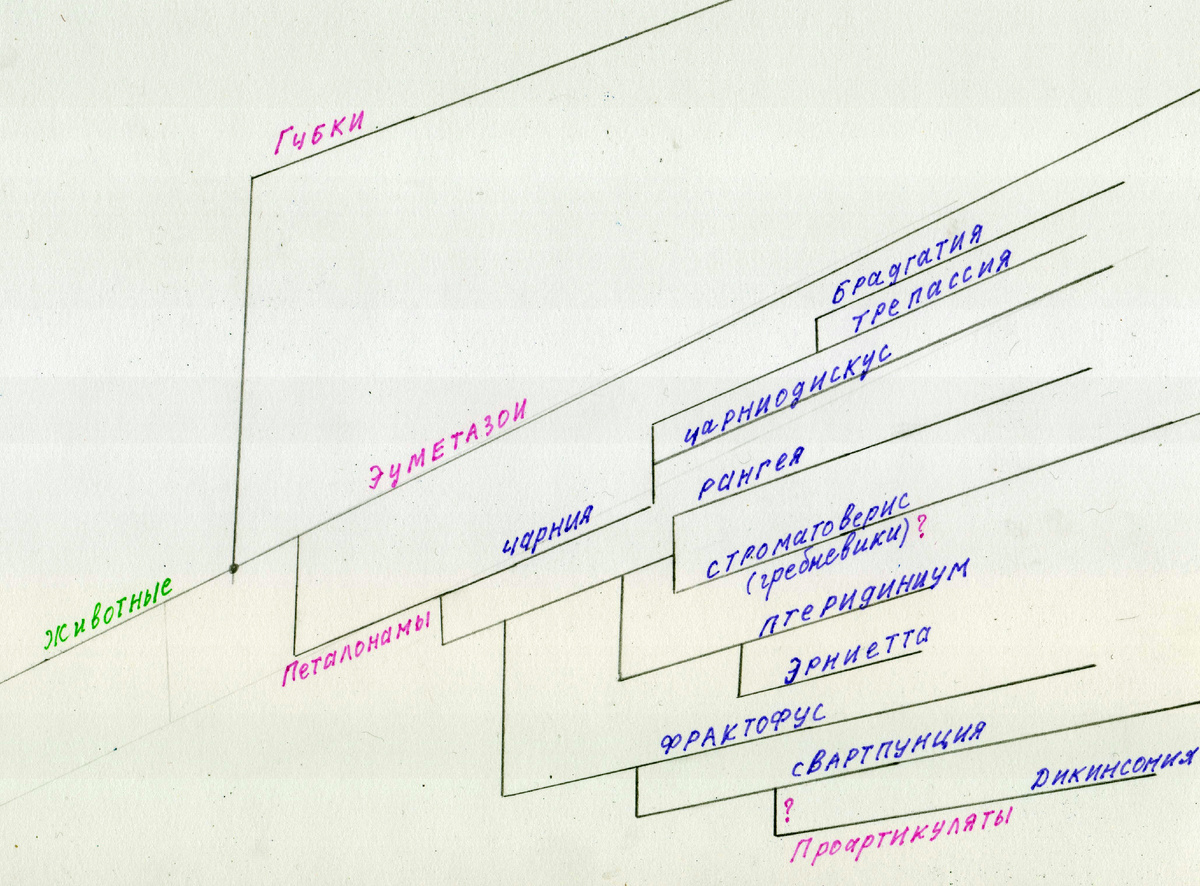 Губки
брадгатия
трепассия
чарниодискус
Эуметазои
рангея
чарния
строматоверис
(гребневики)?
Животные
птеридиниум
Петалонамы
Эрниетта
ФРАКТОФУС
СВАРТПУНЦИЯ
Дикинсония
?
Проартикуляты